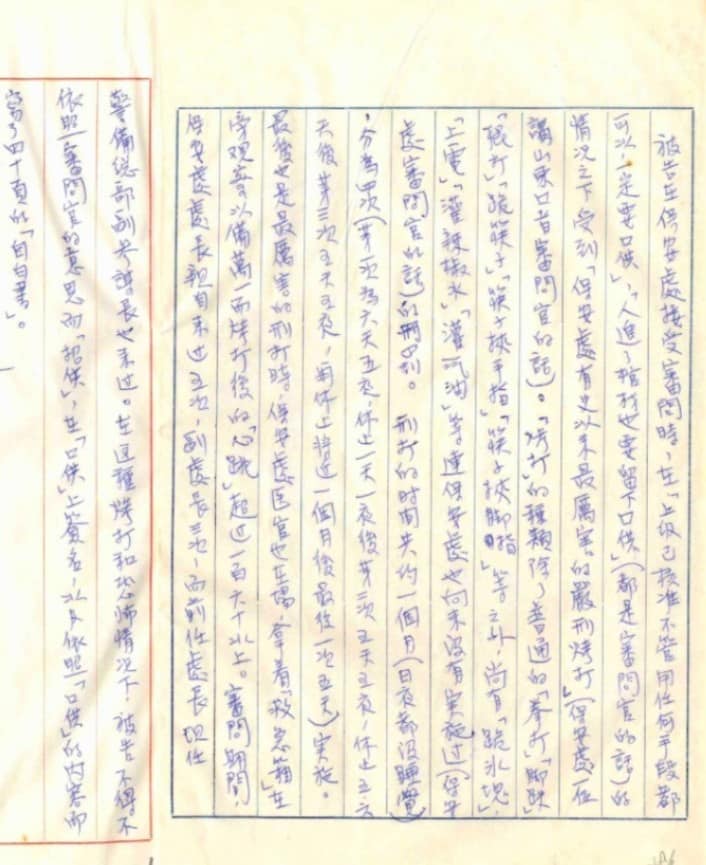 被告在保安處接受審問時,在「上級已核准不管用任何手段都
可以,一定要口供」,「人進了棺材也要留下口供」(都是審問官的話)的
情況之下受到「保安處有史以來最厲害的嚴刑烤打」(保安處一位
講山東口音審問官的話)。「烤打」的種類除了普通的「拳打」「腳踢」
「筷子」「筷子挾手指」「筷子挾脚指」等之外,尚有「跪冰塊」,
「上電」「灌辣椒水」「灌汽油」等連保安處也向來沒有實施過(保安
處審問官的話)的刑罰。刑打的时间共約一個月(日夜都沒睡覺)
,分為四次(第一次為六天五夜,休止一天一夜後第二次五天五夜,休止五六
天後第三次五天五夜,再休止接近一個月後最後一次五天)实施。
最後也是最厲害的刑打時,保安處医官也在場,拿着「救急箱」在
旁观察以備萬一而烤打後的「心跳」超过一百六十以上。審問期間,
保安處處長親自来过五次,副處長三次,而前任處長現任
警備総部副参謀長也来过。在這種烤打和恐怖情况下,被告不得不
依照審問官的意思而「招供」,在「口供」上簽名,以及依照「口供」的内容而
寫了四十頁的「自白書」。